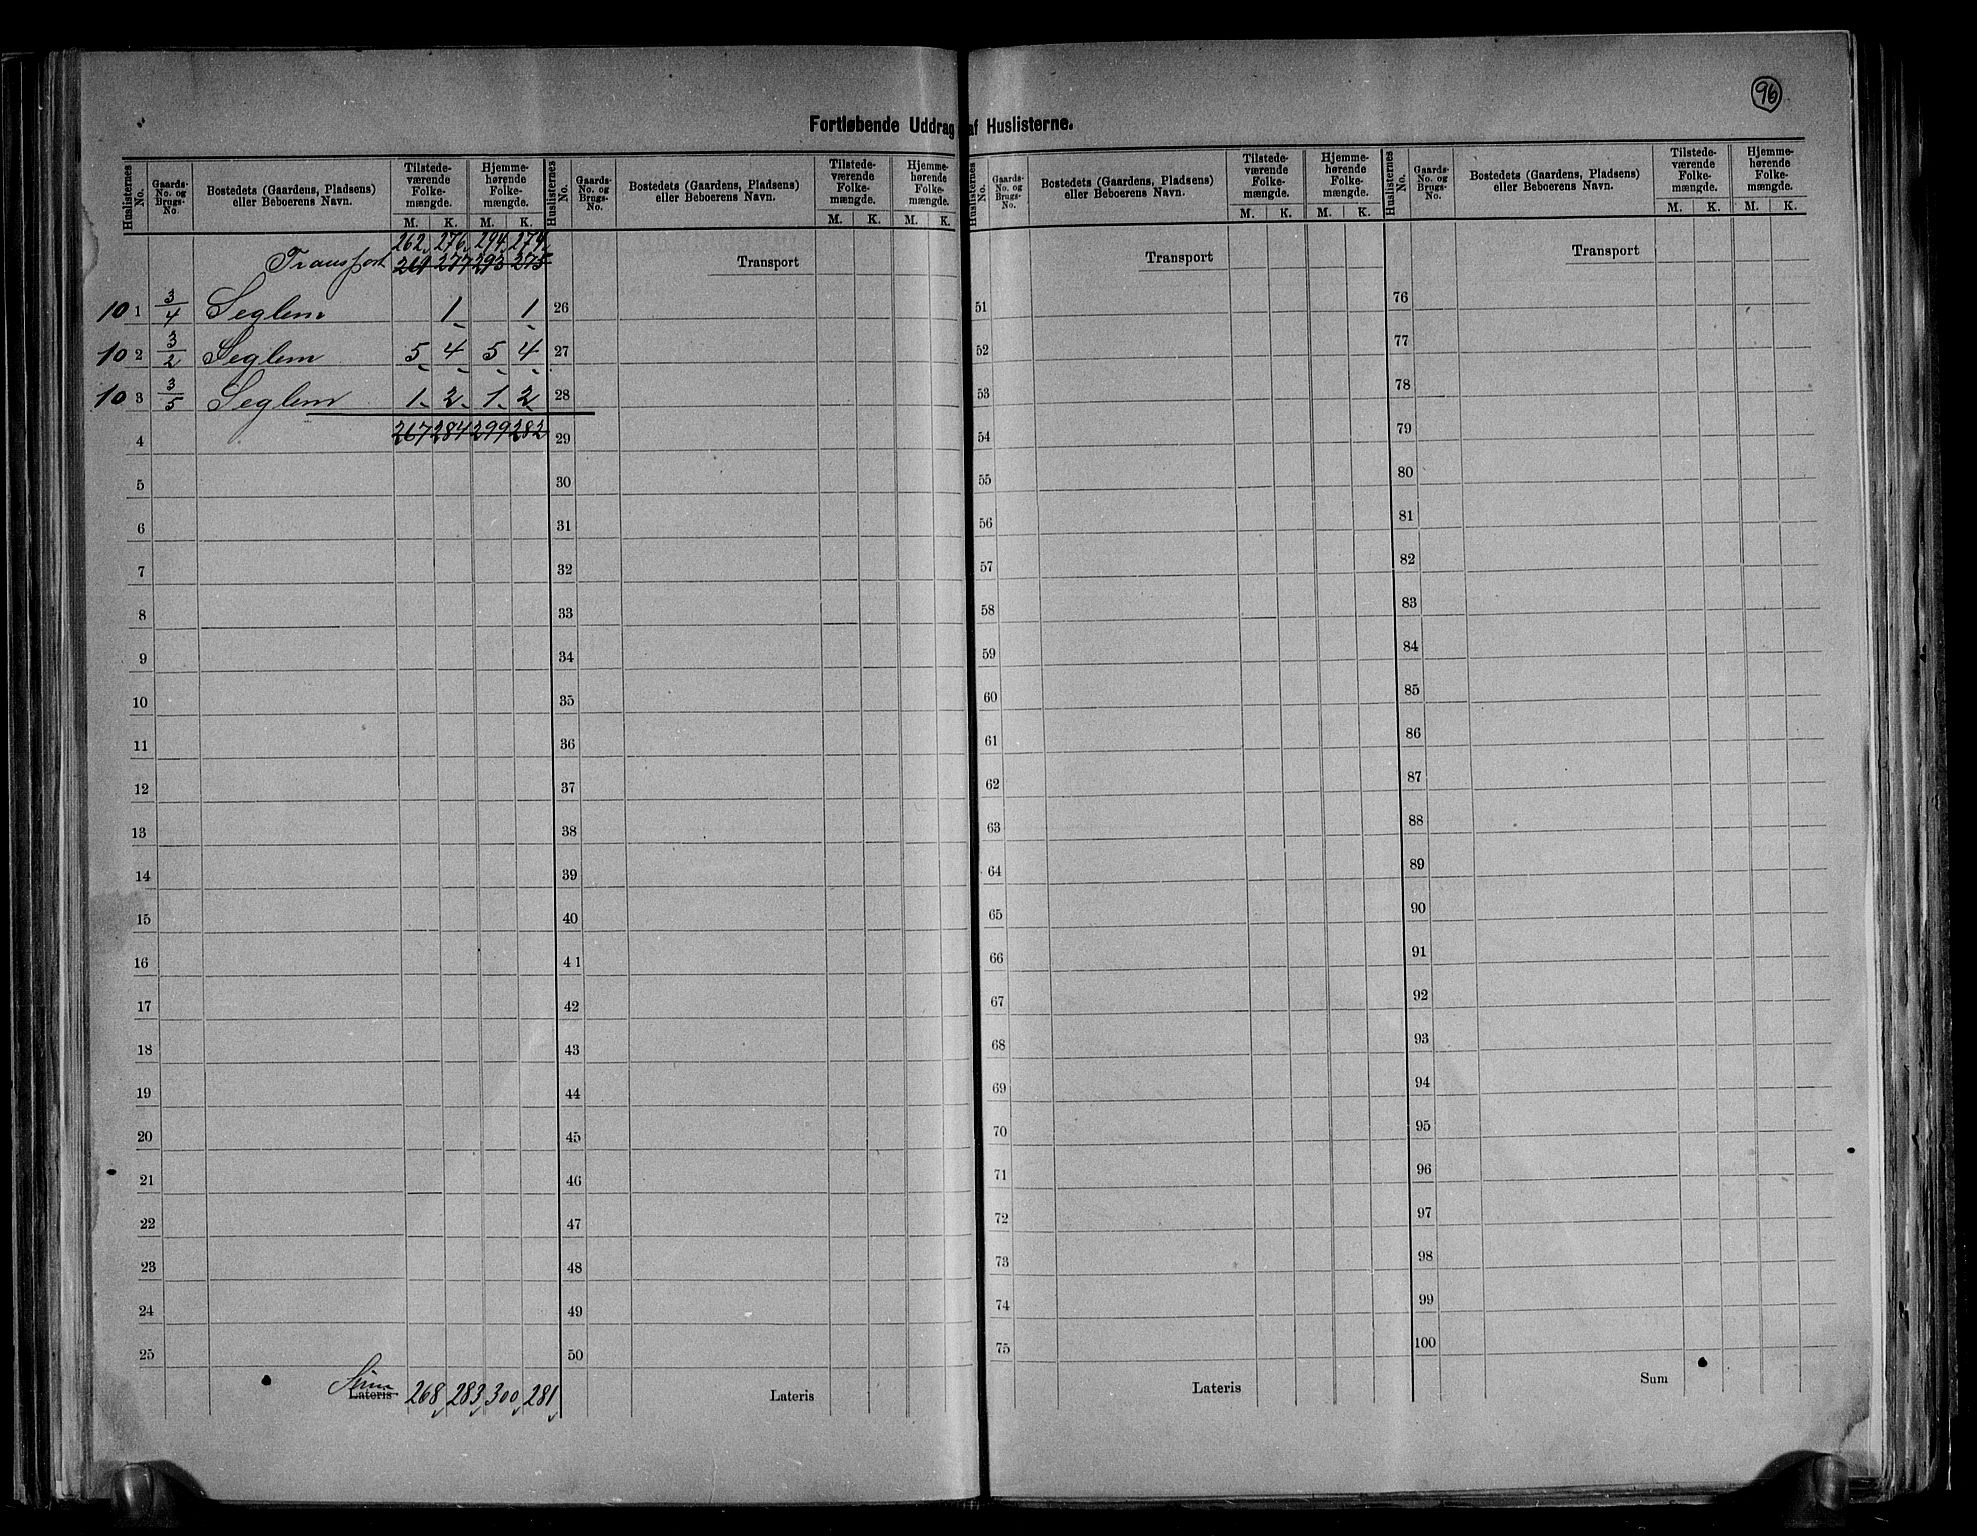 96
Fortløbende Uddrag af Huslisterne.
Huslisternes No. | Gaards-No. og Brugs-No. | Bostedets (Gaardens, Pladsens) eller Beboerens Navn. | Tilstedeværende Folkemængde. M. K. | Hjemmehørende Folkemængde. M. K. | Huslisternes No. | Gaards-No. og Brugs-No. | Bostedets (Gaardens, Pladsens) eller Beboerens Navn. | Tilstedeværende Folkemængde. M. K. | Hjemmehørende Folkemængde. M. K. | Huslisternes No. | Gaards-No. og Brugs-No. | Bostedets (Gaardens, Pladsens) eller Beboerens Navn. | Tilstedeværende Folkemængde. M. K. | Hjemmehørende Folkemængde. M. K. | Huslisternes No. | Gaards-No. og Brugs-No. | Bostedets (Gaardens, Pladsens) eller Beboerens Navn. | Tilstedeværende Folkemængde. M. K. | Hjemmehørende Folkemængde. M. K.
262 276 294 274
Transport 261 277 293 275
10 1 3/4 Seglem 1 1
10 2 3/2 Seglem 5 4 5 4
10 3 3/5 Seglem 1 2 1 2
4 267 284 299 282
5
6
7
8
9
10
11
12
13
14
15
16
17
18
19
20
21
22
23
24
25
Suma
Lateris 268 283 300 281
Transport
26
27
28
29
30
31
32
33
34
35
36
37
38
39
40
41
42
43
44
45
46
47
48
49
50
Lateris
Transport
51
52
53
54
55
56
57
58
59
60
61
62
63
64
65
66
67
68
69
70
71
72
73
74
75
Lateris
Transport
76
77
78
79
80
81
82
83
84
85
86
87
88
89
90
91
92
93
94
95
96
97
98
99
100
Sum